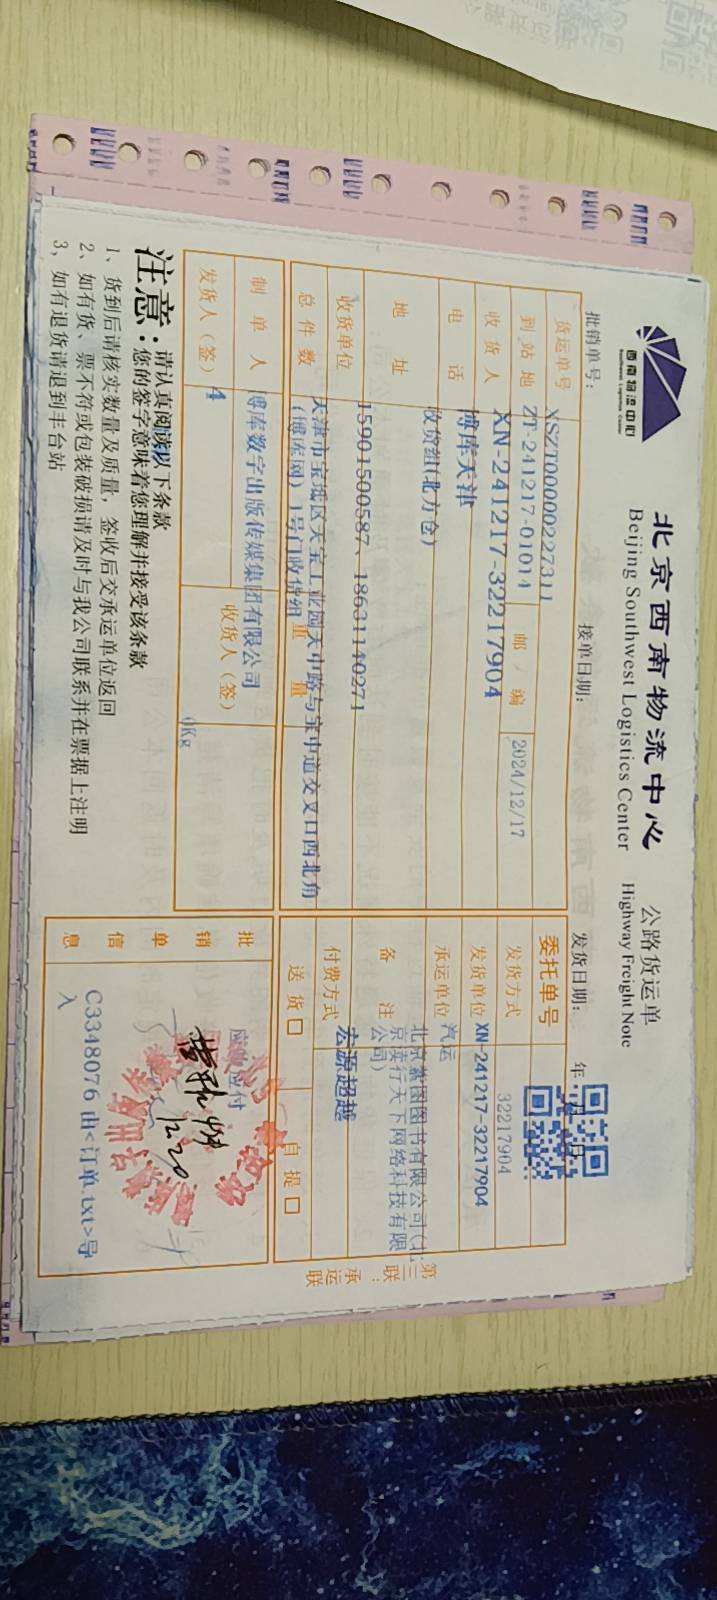 西南物流中心
Southwest Logistics Center
北京西南物流中心
Beijing Southwest Logistics Center
公路货运单
Highway Freight Note
批销单号：
接单日期：
发货日期： 年 月 日
XSZT00000227311
货运单号
ZT-241217-01014
到站地
邮/编
2024/12/17
收货人
XN-241217-32217904
电话
博库天津
地址
收货组(北方仓)
收货单位
15901500587、18631140271
总件数
天津市宝坻区天宝工业园天中路与宝中道交叉口西北角
(博库网) 1号门收货组
重量
制单人
博库数字出版传媒集团有限公司
发货人（签）
4
收货人（签）
0Kg
委托单号
发货方式
32217904
发货单位
XN-241217-32217904
承运单位
汽运
备注
北京紫图图书有限公司(北
京读行天下网络科技有限
公司)
付费方式
宏源超越
送货□
自提□
批销单信息
应收应付
12.20
C3348076 由<订单.txt>导
入
第三联：承运联
注意：
请认真阅读以下条款
您的签字意味着您理解并接受该条款
1、货到后请核实数量及质量，签收后交承运单位返回
2、如有货、票不符或包装破损请及时与我公司联系并在票据上注明
3、如有退货请退到丰台站